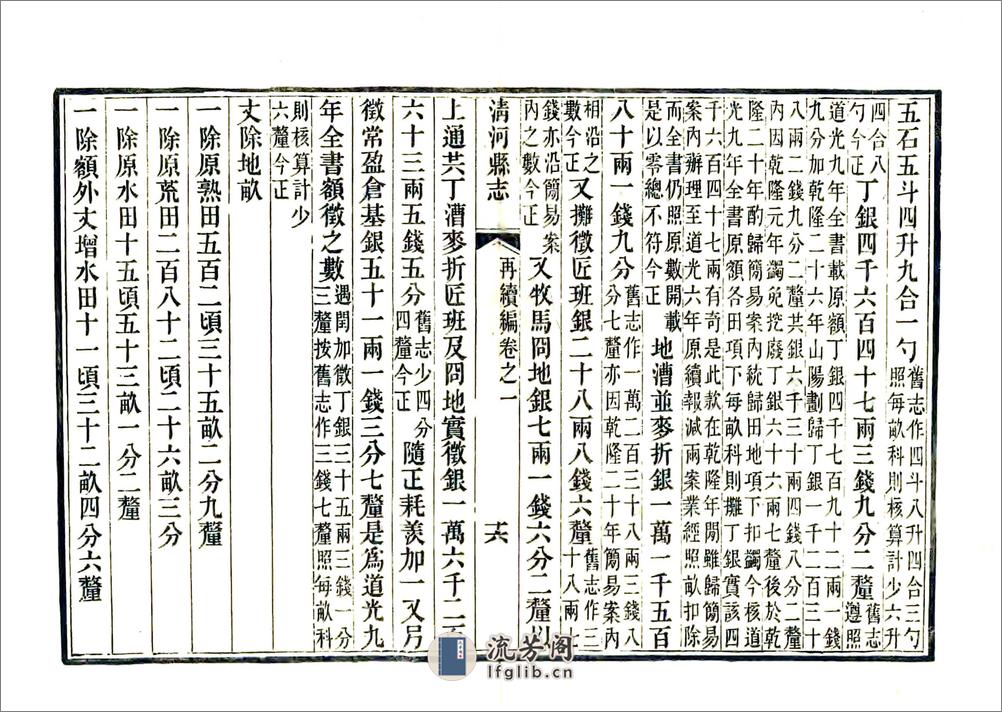 五石五斗四升九合一勺
舊志作四斗八升四合三勺
照每畝科則核算計少六升
四合八
勺今正
丁銀四千六百四十七兩三錢九分二釐
舊志
遵照
道光九年全書載原額丁銀四千七百九十二兩一錢
九分加乾隆二十六年山陽劃歸丁銀一千二百三十
八兩二錢九分二釐共銀六千三十兩四錢八分二釐
內因乾隆元年蠲免挖廢丁銀六十六兩七釐後於乾
隆二十年酌歸簡易案內統歸田地項下扣蠲今核道
光九年全書原額各田項下每畝科則攤丁銀實該四
千六百四十七兩有奇是此款在乾隆年間雖歸簡易
案內辦理至道光六年原續報減兩案業經照畝扣除
而全書仍照原數開載
是以零總不符今正
地漕並麥折銀一萬一千五百
八十兩一錢九分
舊志作一萬二百三十八兩三錢八
分七釐亦因乾隆二十年簡易案內
相沿之
數今正
又攤徵匠班銀二十八兩八錢六釐
舊志作三
十八兩七
錢亦沿簡易案
內之數今正
又牧馬冏地銀七兩一錢六分二釐以
淸河縣志
再續編卷之一
十六
上通共丁漕麥折匠班及冏地實徵銀一萬六千二百
六十三兩五錢五分
舊志少四分
四釐今正
隨正耗羨加一又另
徵常盈倉基銀五十一兩一錢三分七釐是爲道光九
年全書額徵之數
遇閏加徵丁銀三十五兩三錢一分
三釐按舊志作三錢七釐照每畝科
則核算計少
六釐今正
丈除地畝
一除原熟田五百二頃三十五畝二分九釐
一除原荒田二百八十二頃二十六畝三分
一除原水田十五頃五十三畝一分二釐
一除額外丈增水田十一頃三十二畝四分六釐
流芳阁
lfglib.cn